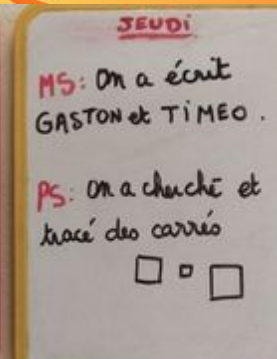 JEUDi
MS: On a écrit
GASTON et TiMEO.
PS: On a cherché et
tracé des carrés